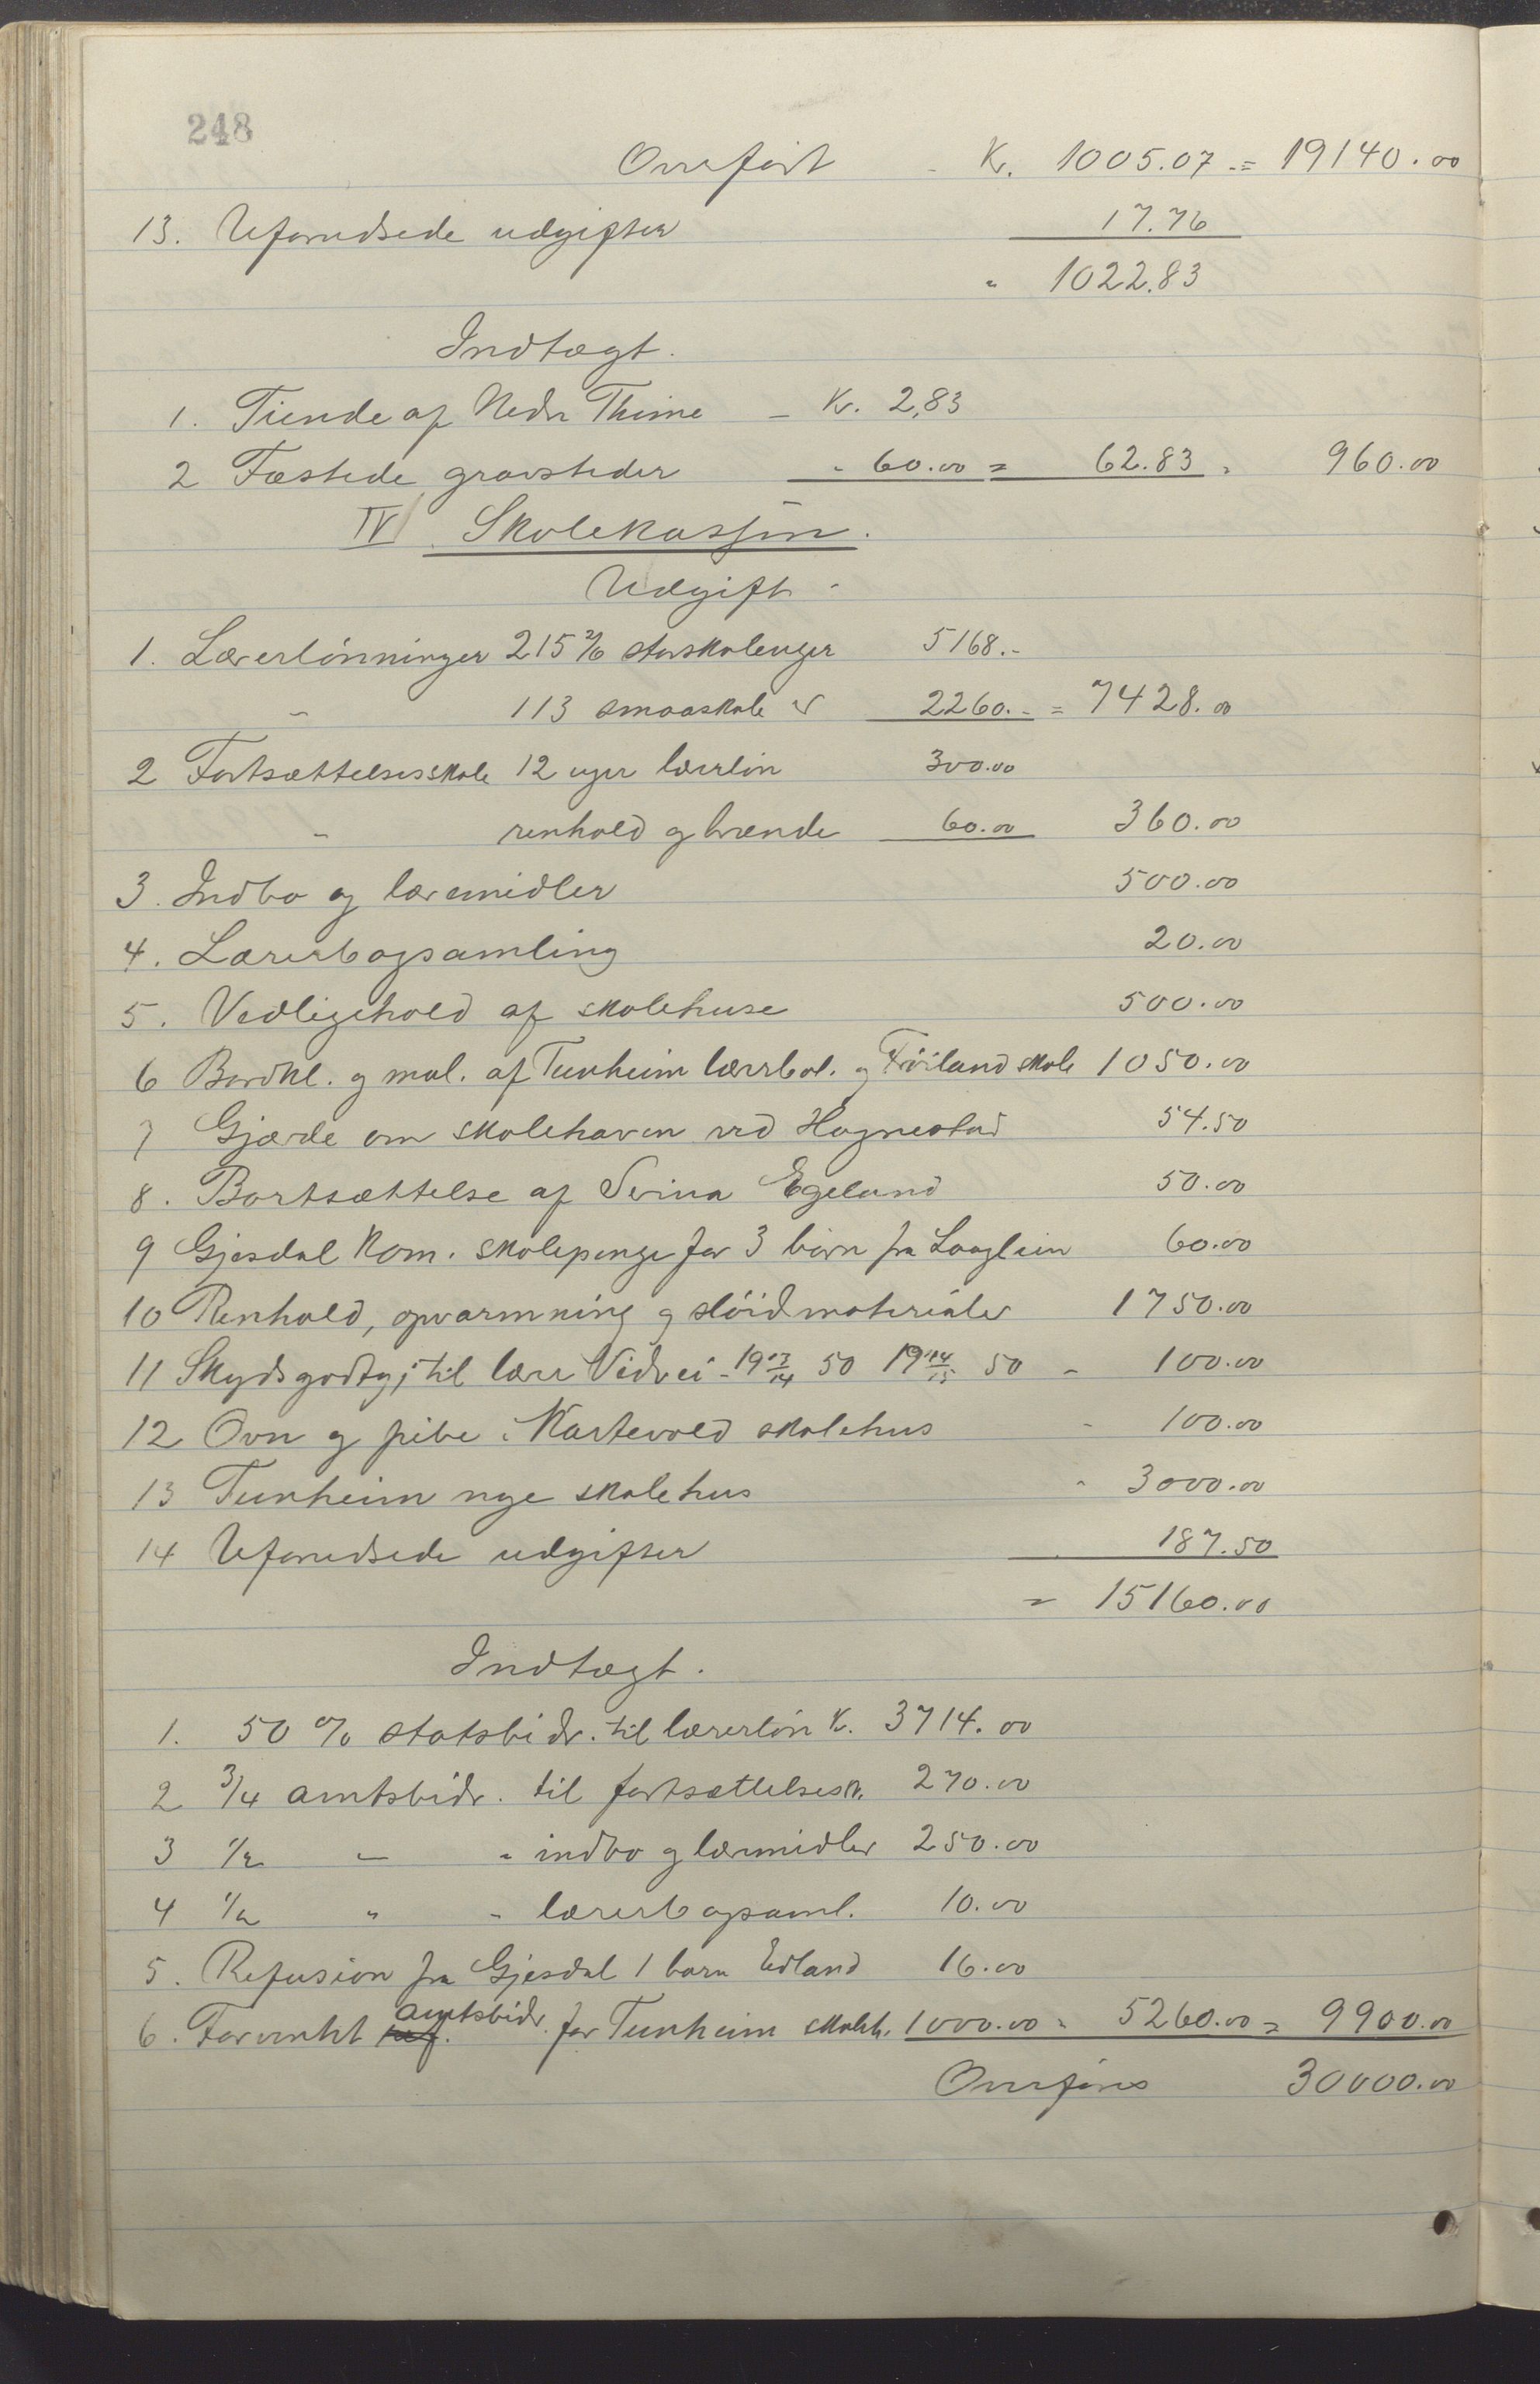 248
Overført - Kr. 1005.07 = 19140.00
13. Uforudsede udgifter 17.76
" 1022.83
Indtægt.
1. Tiende af Nedr Thime - Kr. 2,83
2 Fæstede gravsteder " 60.00 = 62.83 = 960.00
IV Skolekassen.
Udgift.
1. Lærerlønninger 215 2/6 storskoleuger 5168.-
- 113 smaaskole " 2260.- = 7428.00
2 Fortsættelsesskole 12 uger lærerløn 300.00
- renhold og brænde 60.00 360.00
3. Indbo og læremidler 500.00
4. Lærerbogsamling 20.00
5. Vedligehold af skolehuse 500.00
6 Bordkl. og mal. af Tunheim lærerbol. og Frøiland skole 1050.00
7 Gjærde om skolehaven ved Hognestad 54.50
8. Bortsættelse af Serina Egeland 50.00
9 Gjesdal Kom. skolepenge for 3 børn fra 60.00
10 Renhold, opvarmning og sløidmaterialer 1750.00
11 Skydsgodtgj. til lærer Vedvei - 19 13/14 50 19 14/15 50 - 100.00
12 Ovn og pibe i Kartevold skolehus - 100.00
13 Tunheim nye skolehus " 3000.00
14 Uforudsede udgifter 187.50
= 15160.00
Indtægt.
1. 50 % statsbidr. til lærerløn Kr. 3714.00
2 3/4 amtsbidr. til fortsættelsessk. 270.00
3 1/2 - " indbo og læremidler 250.00
4 1/2 " " lærerbogsaml. 10.00
5. Refusion fra Gjesdal 1 barn Edland 16.00
6. Forventet amtsbidr. for Tunheim skoleh. 1000.00 = 5260.00 = 9900.00
Overføres 30000.00